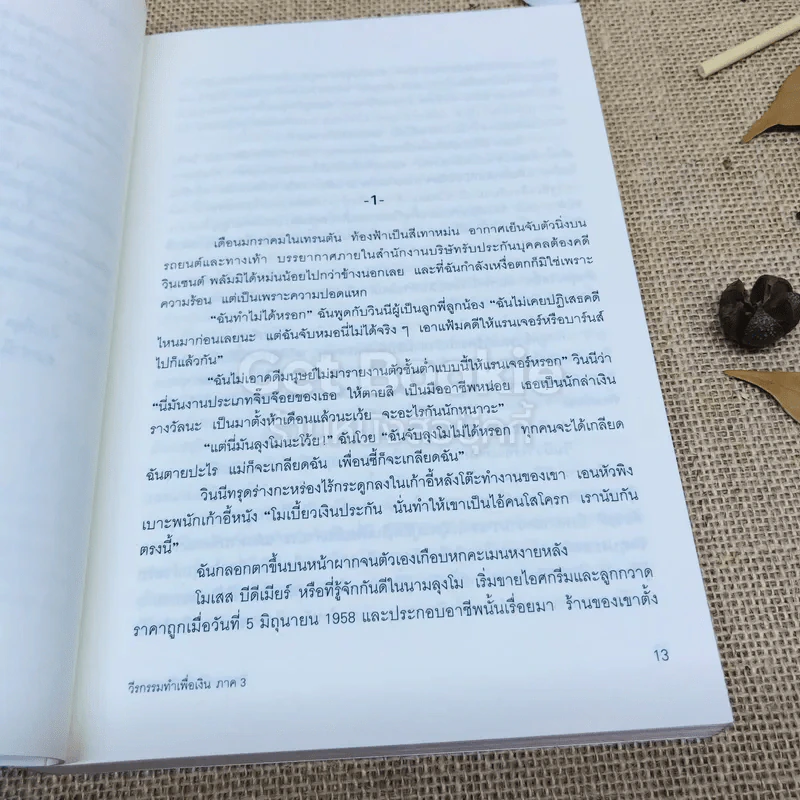 -1-
เดือนมกราคมในเทรนตัน ท้องฟ้าเป็นสีเทาหม่น อากาศเย็นจับตัวนิ่งบน
รถยนต์และทางเท้า บรรยากาศภายในสำนักงานบริษัทรับประกันบุคคลต้องคดี
วินเซนต์ พลัมมิได้หม่นน้อยไปกว่าข้างนอกเลย และที่ฉันกำลังเหงื่อตกก็มิใช่เพราะ
ความร้อน แต่เป็นเพราะความปอดแหก
“ฉันทำไม่ได้หรอก” ฉันพูดกับวินนีผู้เป็นลูกพี่ลูกน้อง “ฉันไม่เคยปฏิเสธคดี
ไหนมาก่อนเลยนะ แต่ฉันจับหมอนี่ไม่ได้จริง ๆ เอาแฟ้มคดีให้แรนเจอร์หรือบาร์นส์
ไปก็แล้วกัน”
“ฉันไม่เอาคดีมนุษย์ไม่มารายงานตัวชั้นต่ำแบบนี้ให้แรนเจอร์หรอก” วินนีว่า
“นี่มันงานประเภทจิ๊บจ๊อยของเธอ ให้ตายสิ เป็นมืออาชีพหน่อย เธอเป็นนักล่าเงิน
รางวัลนะ เป็นมาตั้งห้าเดือนแล้วนะเว้ย จะอะไรกันนักหนาวะ”
“แต่นี่มันลุงโมนะโว้ย!” ฉันโวย “ฉันจับลุงโมไม่ได้หรอก ทุกคนจะได้เกลียด
ฉันตายปะไร แม่ก็จะเกลียดฉัน เพื่อนซี้ก็จะเกลียดฉัน”
วินนีทรุดร่างกะหร่องไร้กระดูกลงในเก้าอี้หลังโต๊ะทำงานของเขา เอนหัวพิง
เบาะพนักเก้าอี้หนัง “โมเบี้ยวเงินประกัน นั่นทำให้เขาเป็นไอ้คนโสโครก เรานับกัน
ตรงนี้”
ฉันกลอกตาขึ้นบนหน้าผากจนตัวเองเกือบหกคะเมนหงายหลัง
โมเสส บีดีเมียร์ หรือที่รู้จักกันดีในนามลุงโม เริ่มขายไอศกรีมและลูกกวาด
ราคาถูกเมื่อวันที่ 5 มิถุนายน 1958 และประกอบอาชีพนั้นเรื่อยมา ร้านของเขาตั้ง
13
วีรกรรมทำเพื่อเงิน ภาค 3